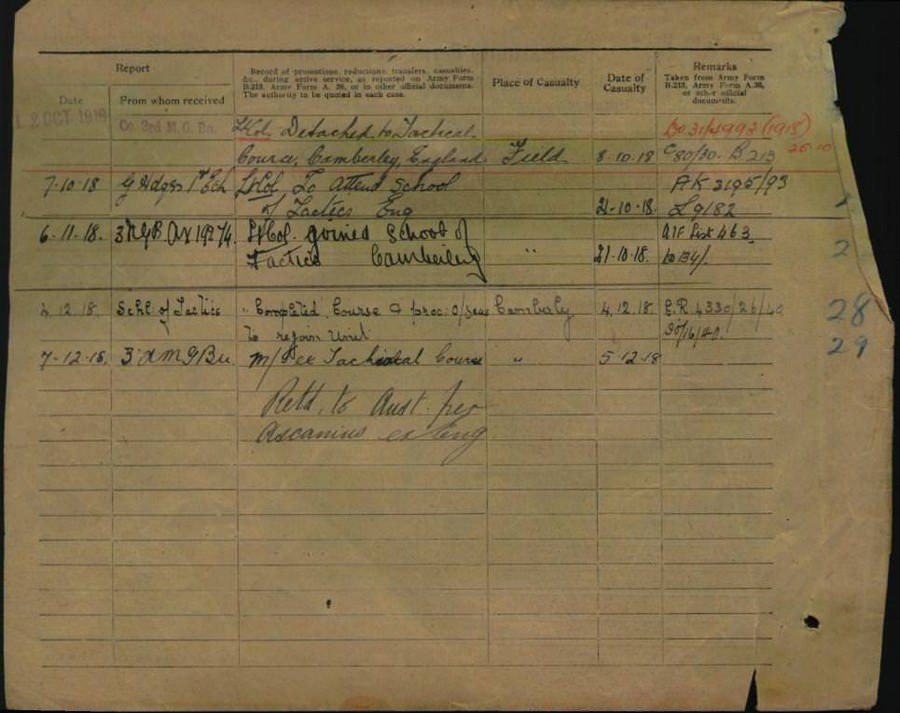 Report
Date
From whom received
Record of promotions, reductions, transfers, casualties,
&c., during active service, as reported on Army Form
B.213, Army Form A. 36, or in other official documents.
The authority to be quoted in each case.
Place of Casualty
Date of
Casualty
Remarks
Taken from Army Form
B.213, Army Form A.36,
or other official
documents.
12 OCT 1918
Co 3rd M.G. Bn.
Lt Col. Detached to Tactical
Course, Camberley, England
Field
8.10.18
(1918)
B 213
7-10-18
Lt Col To Attend School
of Tactics Eng
21-10-18.
AK 3195/93
L9182
6-11-18.
Lt Col. joined School of
Tactics Camberley
"
21-10-18.
AIF List 463
2
4.12.18.
Schl. of Tactics
" Completed Course & proc. o/seas
to rejoin Unit
Camberley
4.12.18.
28
7-12-18.
m/I ex Tactical Course
"
5-12-18
29
Retd. to Aust. per
Ascanius ex Eng